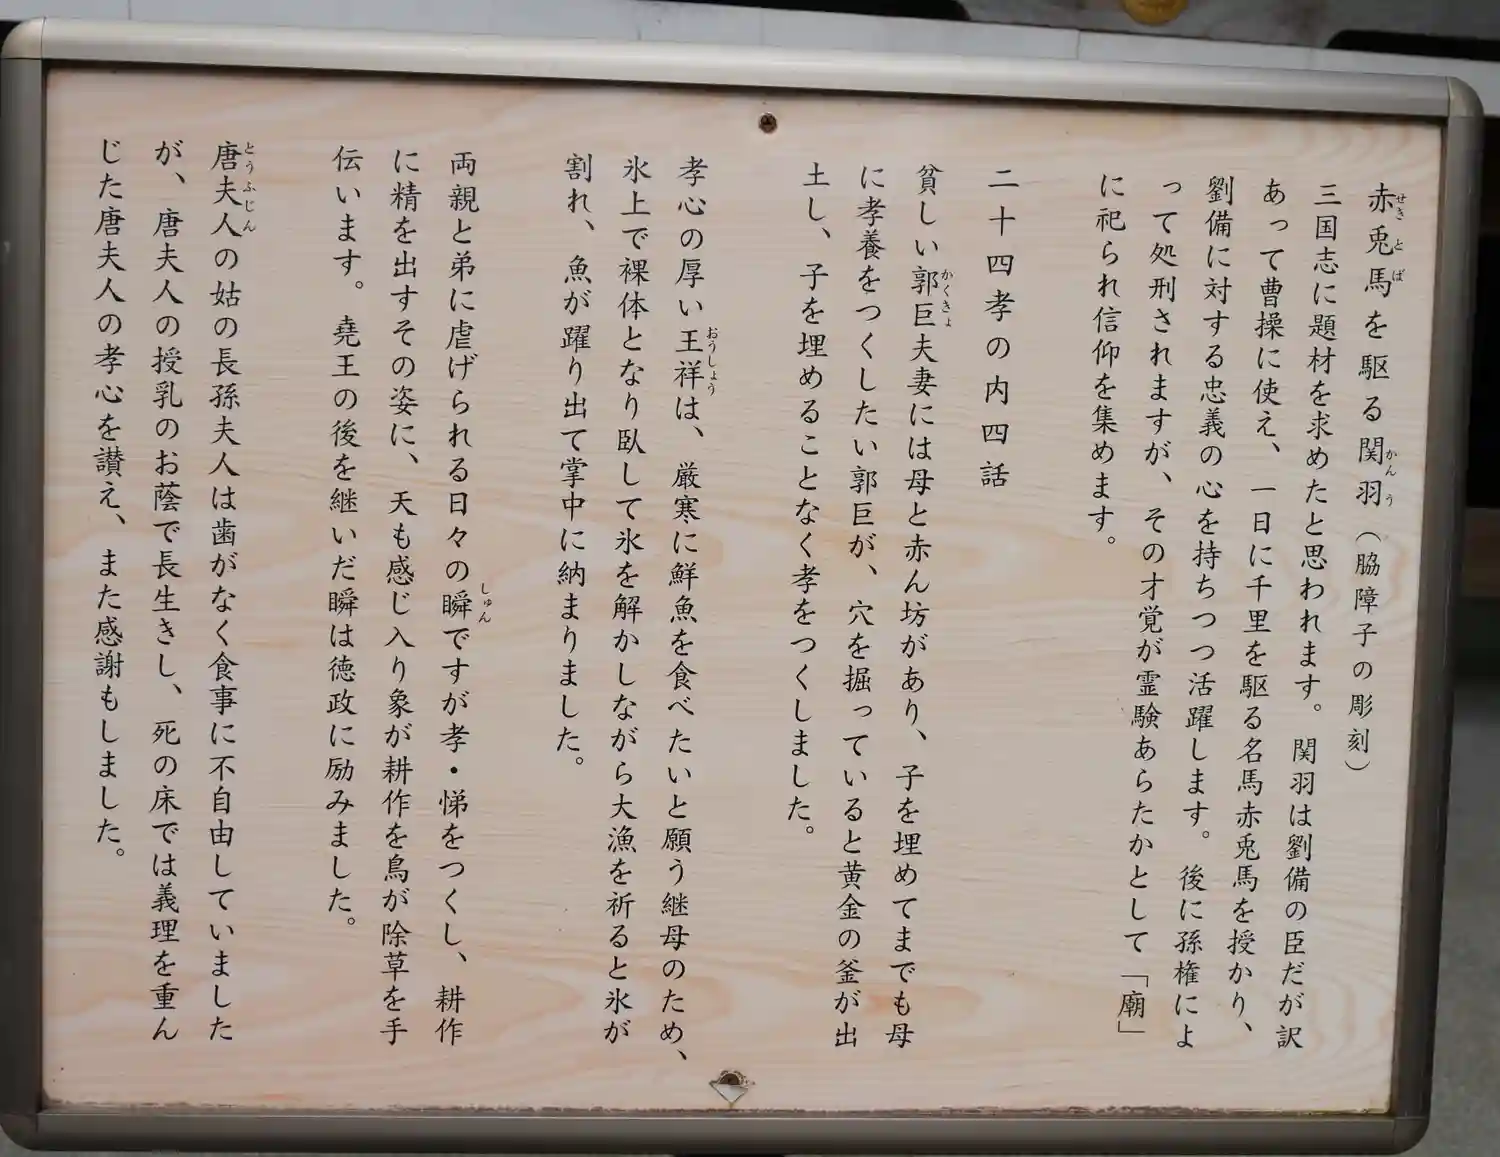 赤兎馬を駆る関羽（脇障子の彫刻）
せきとば
かんう
三国志に題材を求めたと思われます。関羽は劉備の臣だが訳
あって曹操に使え、一日に千里を駆る名馬赤兎馬を授かり、
劉備に対する忠義の心を持ちつつ活躍します。後に孫権によ
って処刑されますが、その才覚が霊験あらたかとして「廟」
に祀られ信仰を集めます。
二十四孝の内四話
貧しい郭巨夫妻には母と赤ん坊があり、子を埋めてまでも母
かくきょ
に孝養をつくしたい郭巨が、穴を掘っていると黄金の釜が出
土し、子を埋めることなく孝をつくしました。
孝心の厚い王祥は、厳寒に鮮魚を食べたいと願う継母のため、
おうしょう
氷上で裸体となり臥して氷を解かしながら大漁を祈ると氷が
割れ、魚が躍り出て掌中に納まりました。
両親と弟に虐げられる日々の瞬ですが孝・悌をつくし、耕作
しゅん
に精を出すその姿に、天も感じ入り象が耕作を鳥が除草を手
伝います。堯王の後を継いだ瞬は徳政に励みました。
唐夫人の姑の長孫夫人は歯がなく食事に不自由していました
とうふじん
が、唐夫人の授乳のお蔭で長生きし、死の床では義理を重ん
じた唐夫人の孝心を讃え、また感謝もしました。